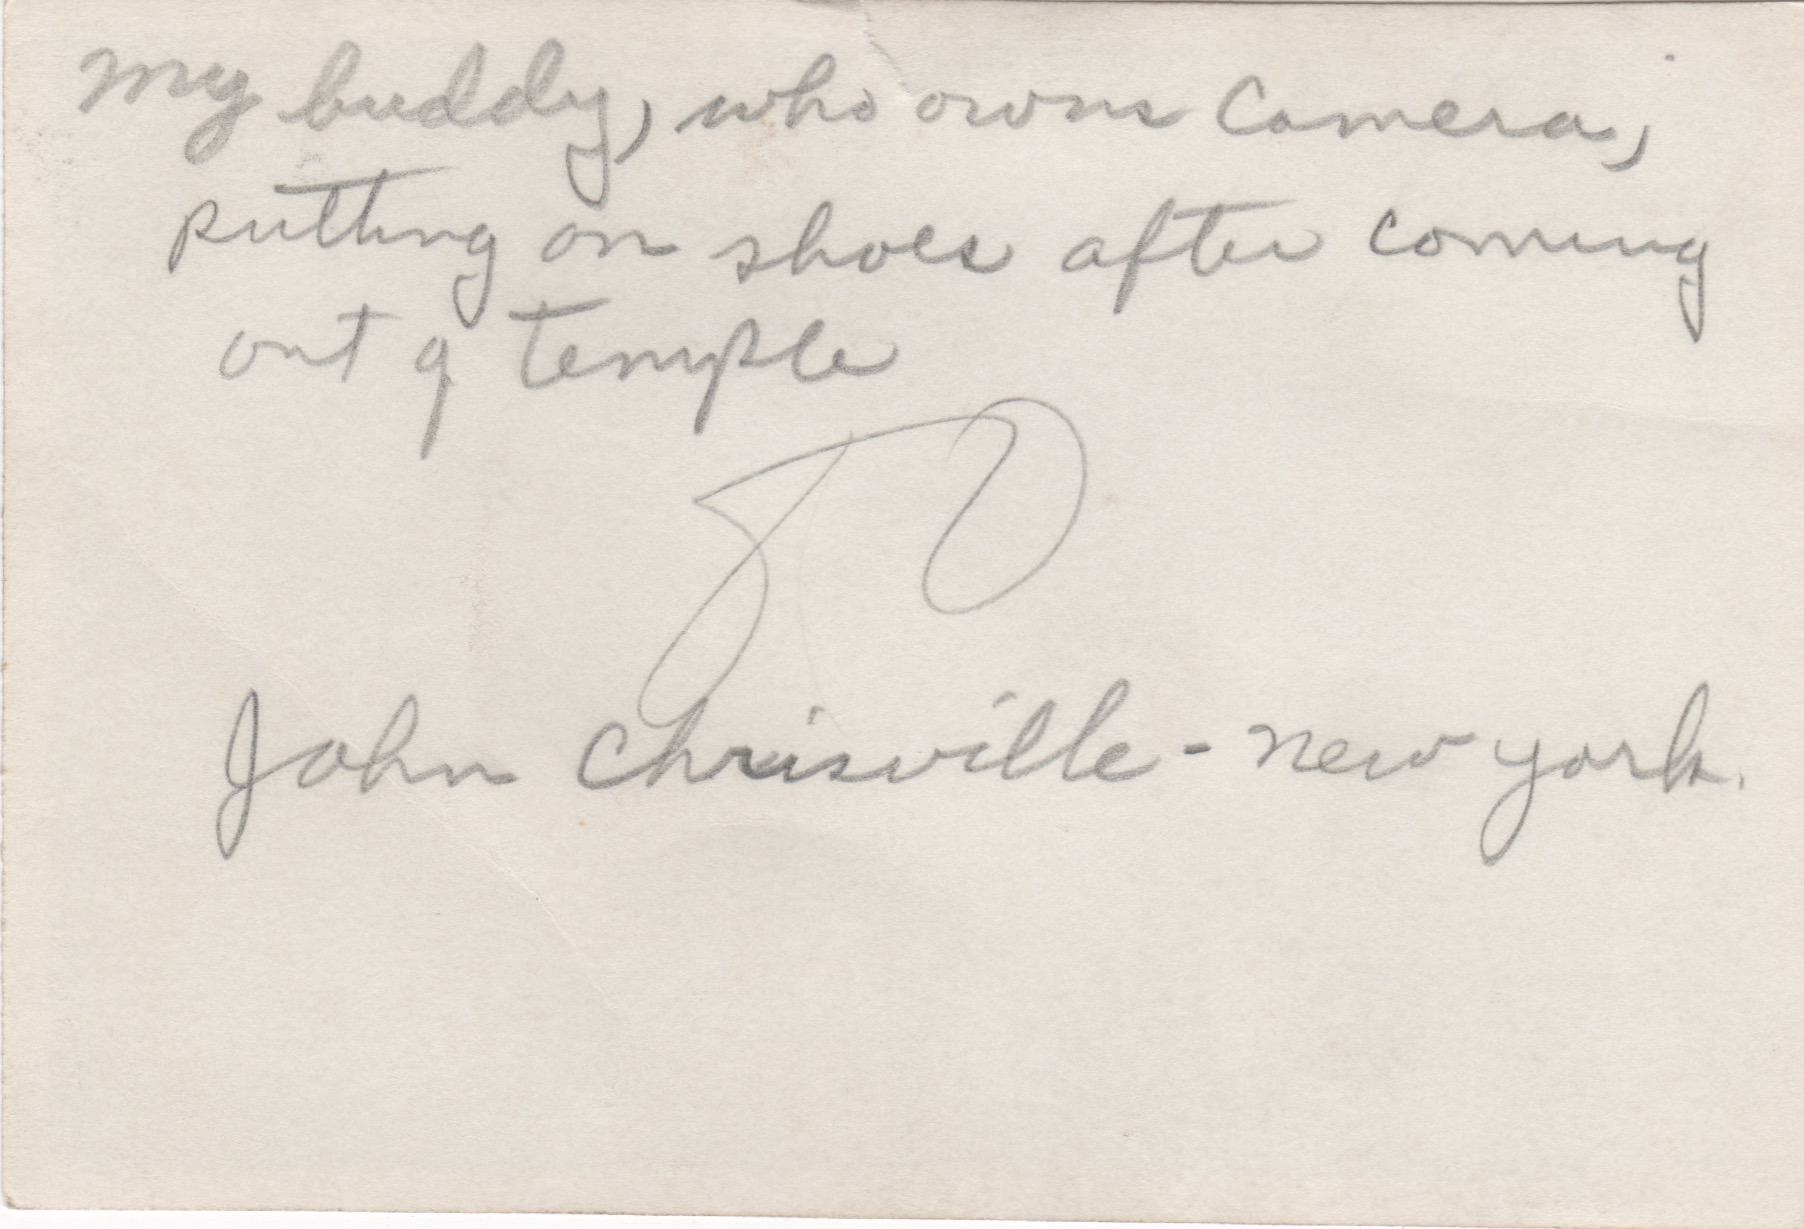 My buddy, who owns Camera,
putting on shoes after coming
out of temple
John Chrisville - New York.